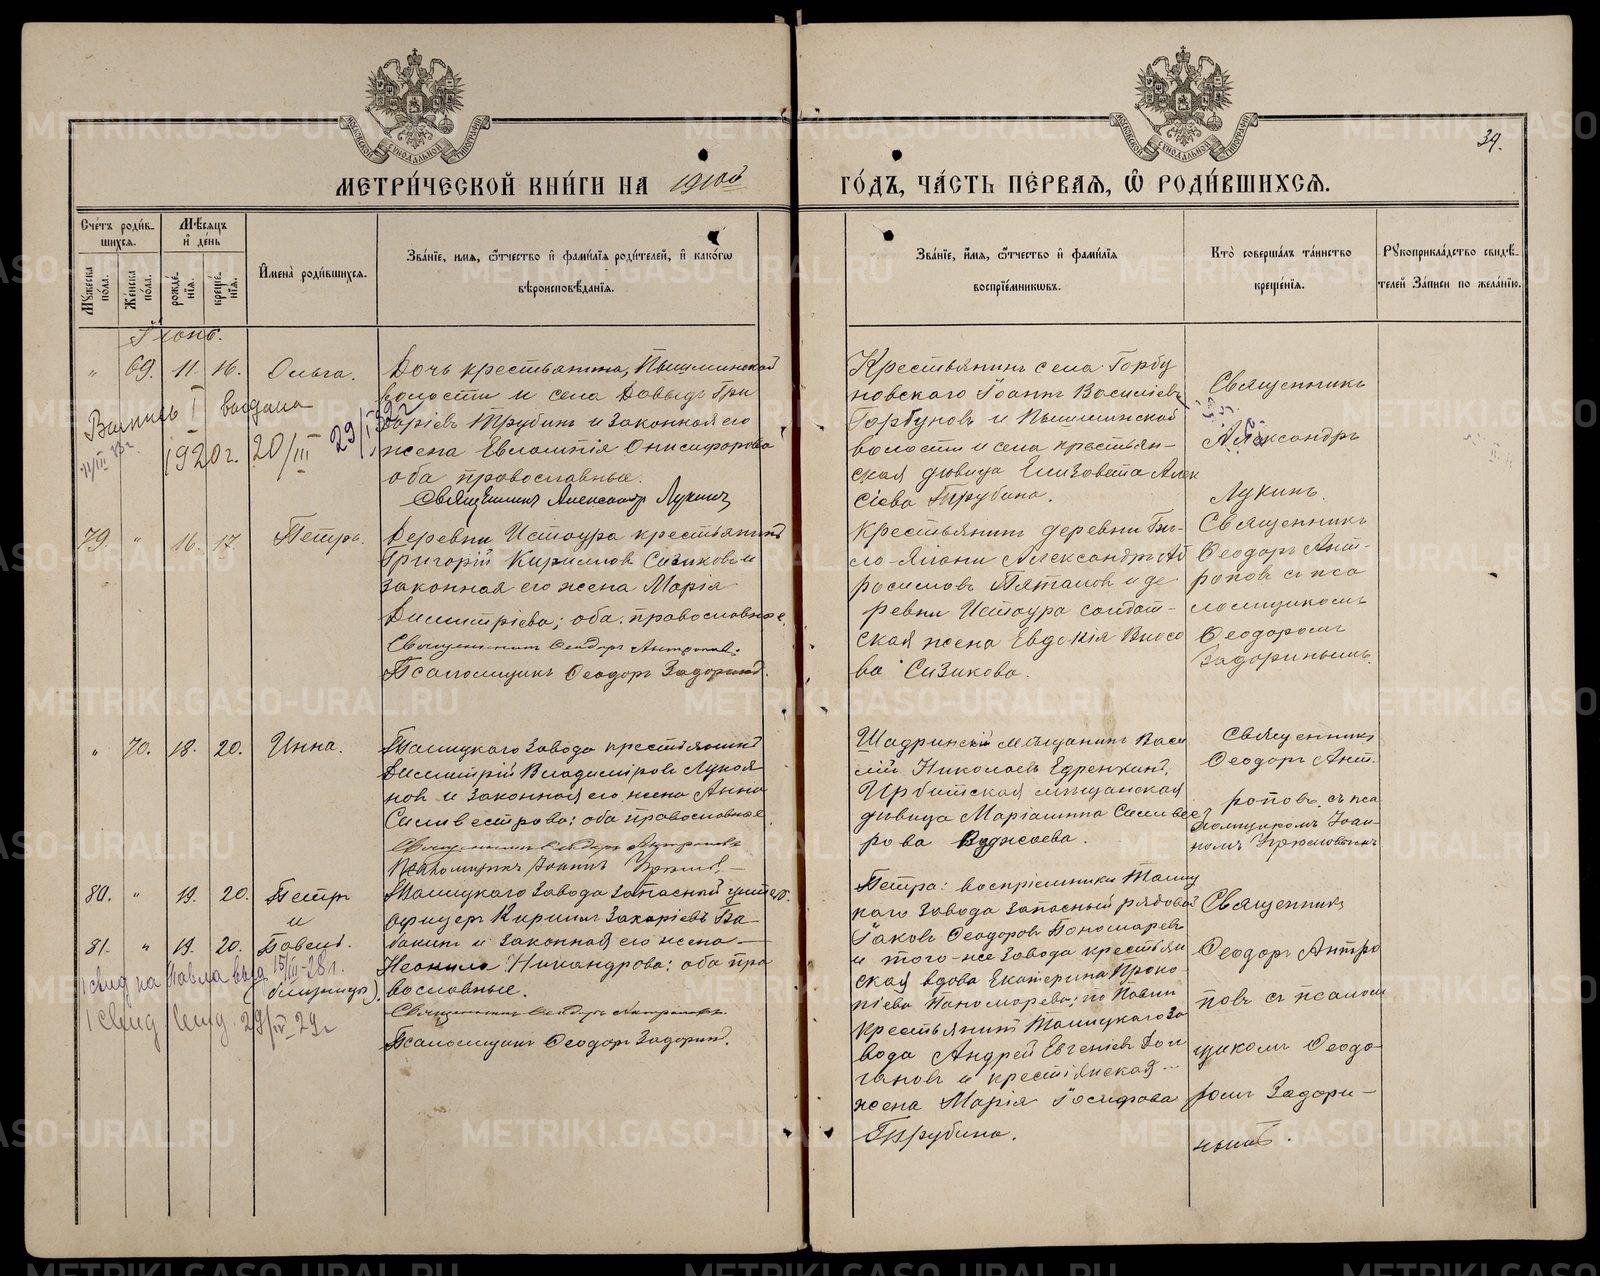 МЕТРИ́ЧЕСКОЙ КНИ́ГИ НА 1910й
ГО́ДЪ, ЧА́СТЬ ПЕ́РВАЯ, Ѽ РОДИ́ВШИХСЯ.
34.
Сче́тъ роди́в-
шихся.
Мѣ́сяцъ
и҆ день
Мꙋ́жеска
по́ла.
Же́нска
по́ла.
рожде́-
нїя.
креще́-
нїя.
И҆мена̀ роди́вшихся.
Зва́нїе, и҆́мя, ѻ҆́тчество и҆ фами́лїя роди́телей, и҆ како́гѡ
вѣроисповѣ́данїя.
Зва́нїе, и҆́мя, ѻ҆́тчество и҆ фами́лїя
воспрїе́мникѡвъ.
Кто̀ соверша́лъ та́инство
креще́нїя.
Рꙋкоприкла́дство свидѣ́-
телей За́писи по жела́нїю.
" 69. 11. 16. Ольга.
Дочь крестьянина, Пышминской
волости и села Давыдъ Гри
горіевъ Трубинъ и законная его
жена Евлампія Онисифорова
оба православные.
Священникъ Александръ Лукинъ
выдана
1920 г. 20/III
Крестьянинъ села Горбу
новскаго Іоаннъ Василіевъ
Горбуновъ и Пышминской
волости и села крестьян-
ская дѣвица Елизавета Алек
сіева Трубина.
Священникъ
Александръ
Лукинъ.
79. " 16. 17. Петръ.
Деревни Истоура крестьянинъ
Григорій Кирилловъ Сизиковъ и
законная его жена Марія
Димитріева; оба православные.
Священникъ Ѳеодоръ Антроповъ.
Псаломщикъ Ѳеодоръ Задоринъ.
Крестьянинъ деревни
Александръ
и де
ревни Истоура солдат-
ская жена Евдокія
ва Сизикова.
Священникъ
Ѳеодоръ Ант-
роповъ съ пса
ломщикомъ
Ѳеодоромъ
Задоринымъ.
" 70. 18. 20. Инна.
Талицкаго завода крестьянинъ
Димитрій Владиміровъ Лукоя
новъ и законная его жена Анна
Сильвестрова; оба православные.
Священникъ Ѳеодоръ Антроповъ
Псаломщикъ Іоаннъ
Шадринскій мѣщанинъ Васи
лій Николаевъ Едренкинъ,
Ирбитская мѣщанская
дѣвица Маріамна Сильвест
рова
Священникъ
Ѳеодоръ Ант-
роповъ съ пса
ломщикомъ Іоан-
номъ
80. " 19. 20. Петръ
и
81. " 19. 20. Павелъ.
(близнецы).
Талицкаго завода запасный унтеръ.
офицеръ Кириллъ Захаріевъ Ба-
бакинъ и законная его жена
Неонила Никандрова; оба пра
вославные.
Священникъ Ѳеодоръ Антроповъ.
Псаломщикъ Ѳеодоръ Задоринъ.
1 свид на Павла выд 15/III-28 г.
1 свид 29/IV 29 г
Петра: воспріемники Талиц
каго завода запасный рядовой
Іаковъ Ѳеодоровъ Пономаревъ
и того-же завода крестьян
ская вдова Екатерина Проко-
піева Пономарева; по Павлѣ
крестьянинъ Талицкаго за
вода Андрей Евгеніевъ
и крестьянская
жена Марія Іосифова
Трубина.
Священникъ
Ѳеодоръ Антро
повъ съ псалом
щикомъ Ѳеодо-
ромъ Задори-
нымъ.
METRIKI.GASO-URAL.RU